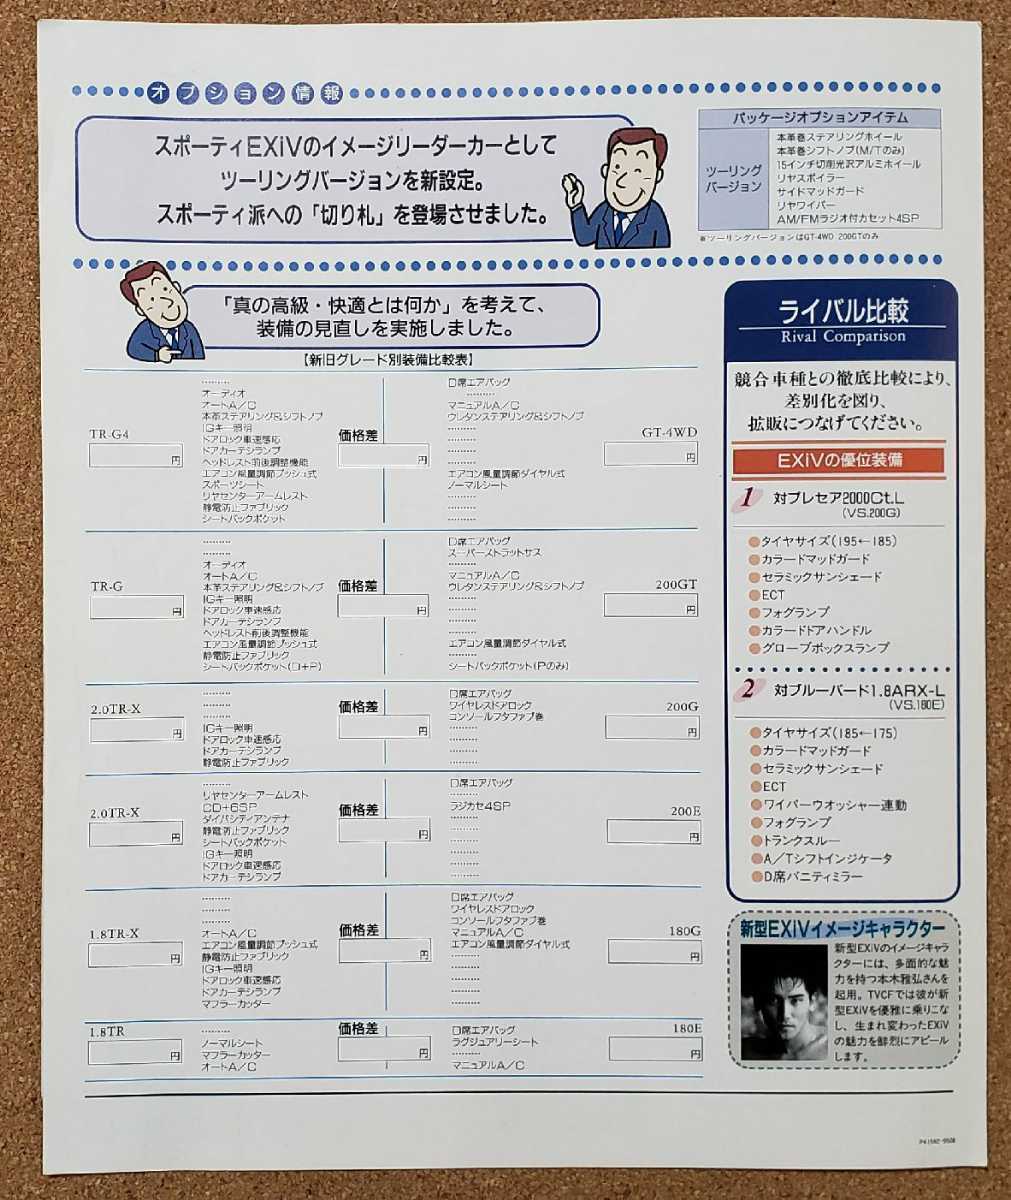 オプション情報
スポーティEXiVのイメージリーダーカーとして
ツーリングバージョンを新設定。
スポーティ派への「切り札」を登場させました。
パッケージオプションアイテム
ツーリング
バージョン
本革巻ステアリングホイール
本革巻シフトノブ(M/Tのみ)
15インチ切削光沢アルミホイール
リヤスポイラー
サイドマッドガード
リヤワイパー
AM/FMラジオ付カセット4SP
※ツーリングバージョンはGT-4WD 200GTのみ
「真の高級・快適とは何か」を考えて、
装備の見直しを実施しました。
【新旧グレード別装備比較表】
TR-G4
円
………
オーディオ
オートA/C
本革ステアリング&シフトノブ
IGキー照明
ドアロック車速感応
ドアカーテシランプ
ヘッドレスト前後調整機能
エアコン風量調節プッシュ式
スポーツシート
リヤセンターアームレスト
静電防止ファブリック
シートバックポケット
価格差
円
D席エアバッグ
………
マニュアルA/C
ウレタンステアリング&シフトノブ
………
………
………
………
エアコン風量調節ダイヤル式
ノーマルシート
………
………
………
GT-4WD
円
TR-G
円
………
………
オーディオ
オートA/C
本革ステアリング&シフトノブ
IGキー照明
ドアロック車速感応
ドアカーテシランプ
ヘッドレスト前後調整機能
エアコン風量調節プッシュ式
静電防止ファブリック
シートバックポケット(D+P)
価格差
円
D席エアバッグ
スーパーストラットサス
………
マニュアルA/C
ウレタンステアリング&シフトノブ
………
………
………
………
エアコン風量調節ダイヤル式
………
シートバックポケット(Pのみ)
200GT
円
2.0TR-X
円
………
………
………
IGキー照明
ドアロック車速感応
ドアカーテシランプ
静電防止ファブリック
価格差
円
D席エアバッグ
ワイヤレスドアロック
コンソールフタファブ巻
………
………
………
………
200G
円
2.0TR-X
円
………
リヤセンターアームレスト
CD+6SP
ダイバシティアンテナ
静電防止ファブリック
シートバックポケット
IGキー照明
ドアロック車速感応
ドアカーテシランプ
価格差
円
D席エアバッグ
………
ラジカセ4SP
………
………
………
………
………
………
200E
円
1.8TR-X
円
………
………
………
オートA/C
エアコン風量調節プッシュ式
静電防止ファブリック
IGキー照明
ドアロック車速感応
ドアカーテシランプ
マフラーカッター
価格差
円
D席エアバッグ
ワイヤレスドアロック
コンソールフタファブ巻
マニュアルA/C
エアコン風量調節ダイヤル式
………
………
………
………
………
180G
円
1.8TR
円
………
ノーマルシート
マフラーカッター
オートA/C
価格差
円
D席エアバッグ
ラグジュアリーシート
………
マニュアルA/C
180E
円
ライバル比較
Rival Comparison
競合車種との徹底比較により、
差別化を図り、
拡販につなげてください。
EXiVの優位装備
1 対プレセア2000Ct.L
(VS.200G)
●タイヤサイズ(195←185)
●カラードマッドガード
●セラミックサンシェード
●ECT
●フォグランプ
●カラードドアハンドル
●グローブボックスランプ
2 対ブルーバード1.8ARX-L
(VS.180E)
●タイヤサイズ(185←175)
●カラードマッドガード
●セラミックサンシェード
●ECT
●ワイパーウオッシャー連動
●フォグランプ
●トランクスルー
●A/Tシフトインジケータ
●D席バニティミラー
新型EXiVイメージキャラクター
新型EXiVのイメージキャラ
クターには、多面的な魅
力を持つ本木雅弘さんを
起用。TVCFでは彼が新
型EXiVを優雅に乗りこな
し、生まれ変わったEXiV
の魅力を鮮烈にアピール
します。